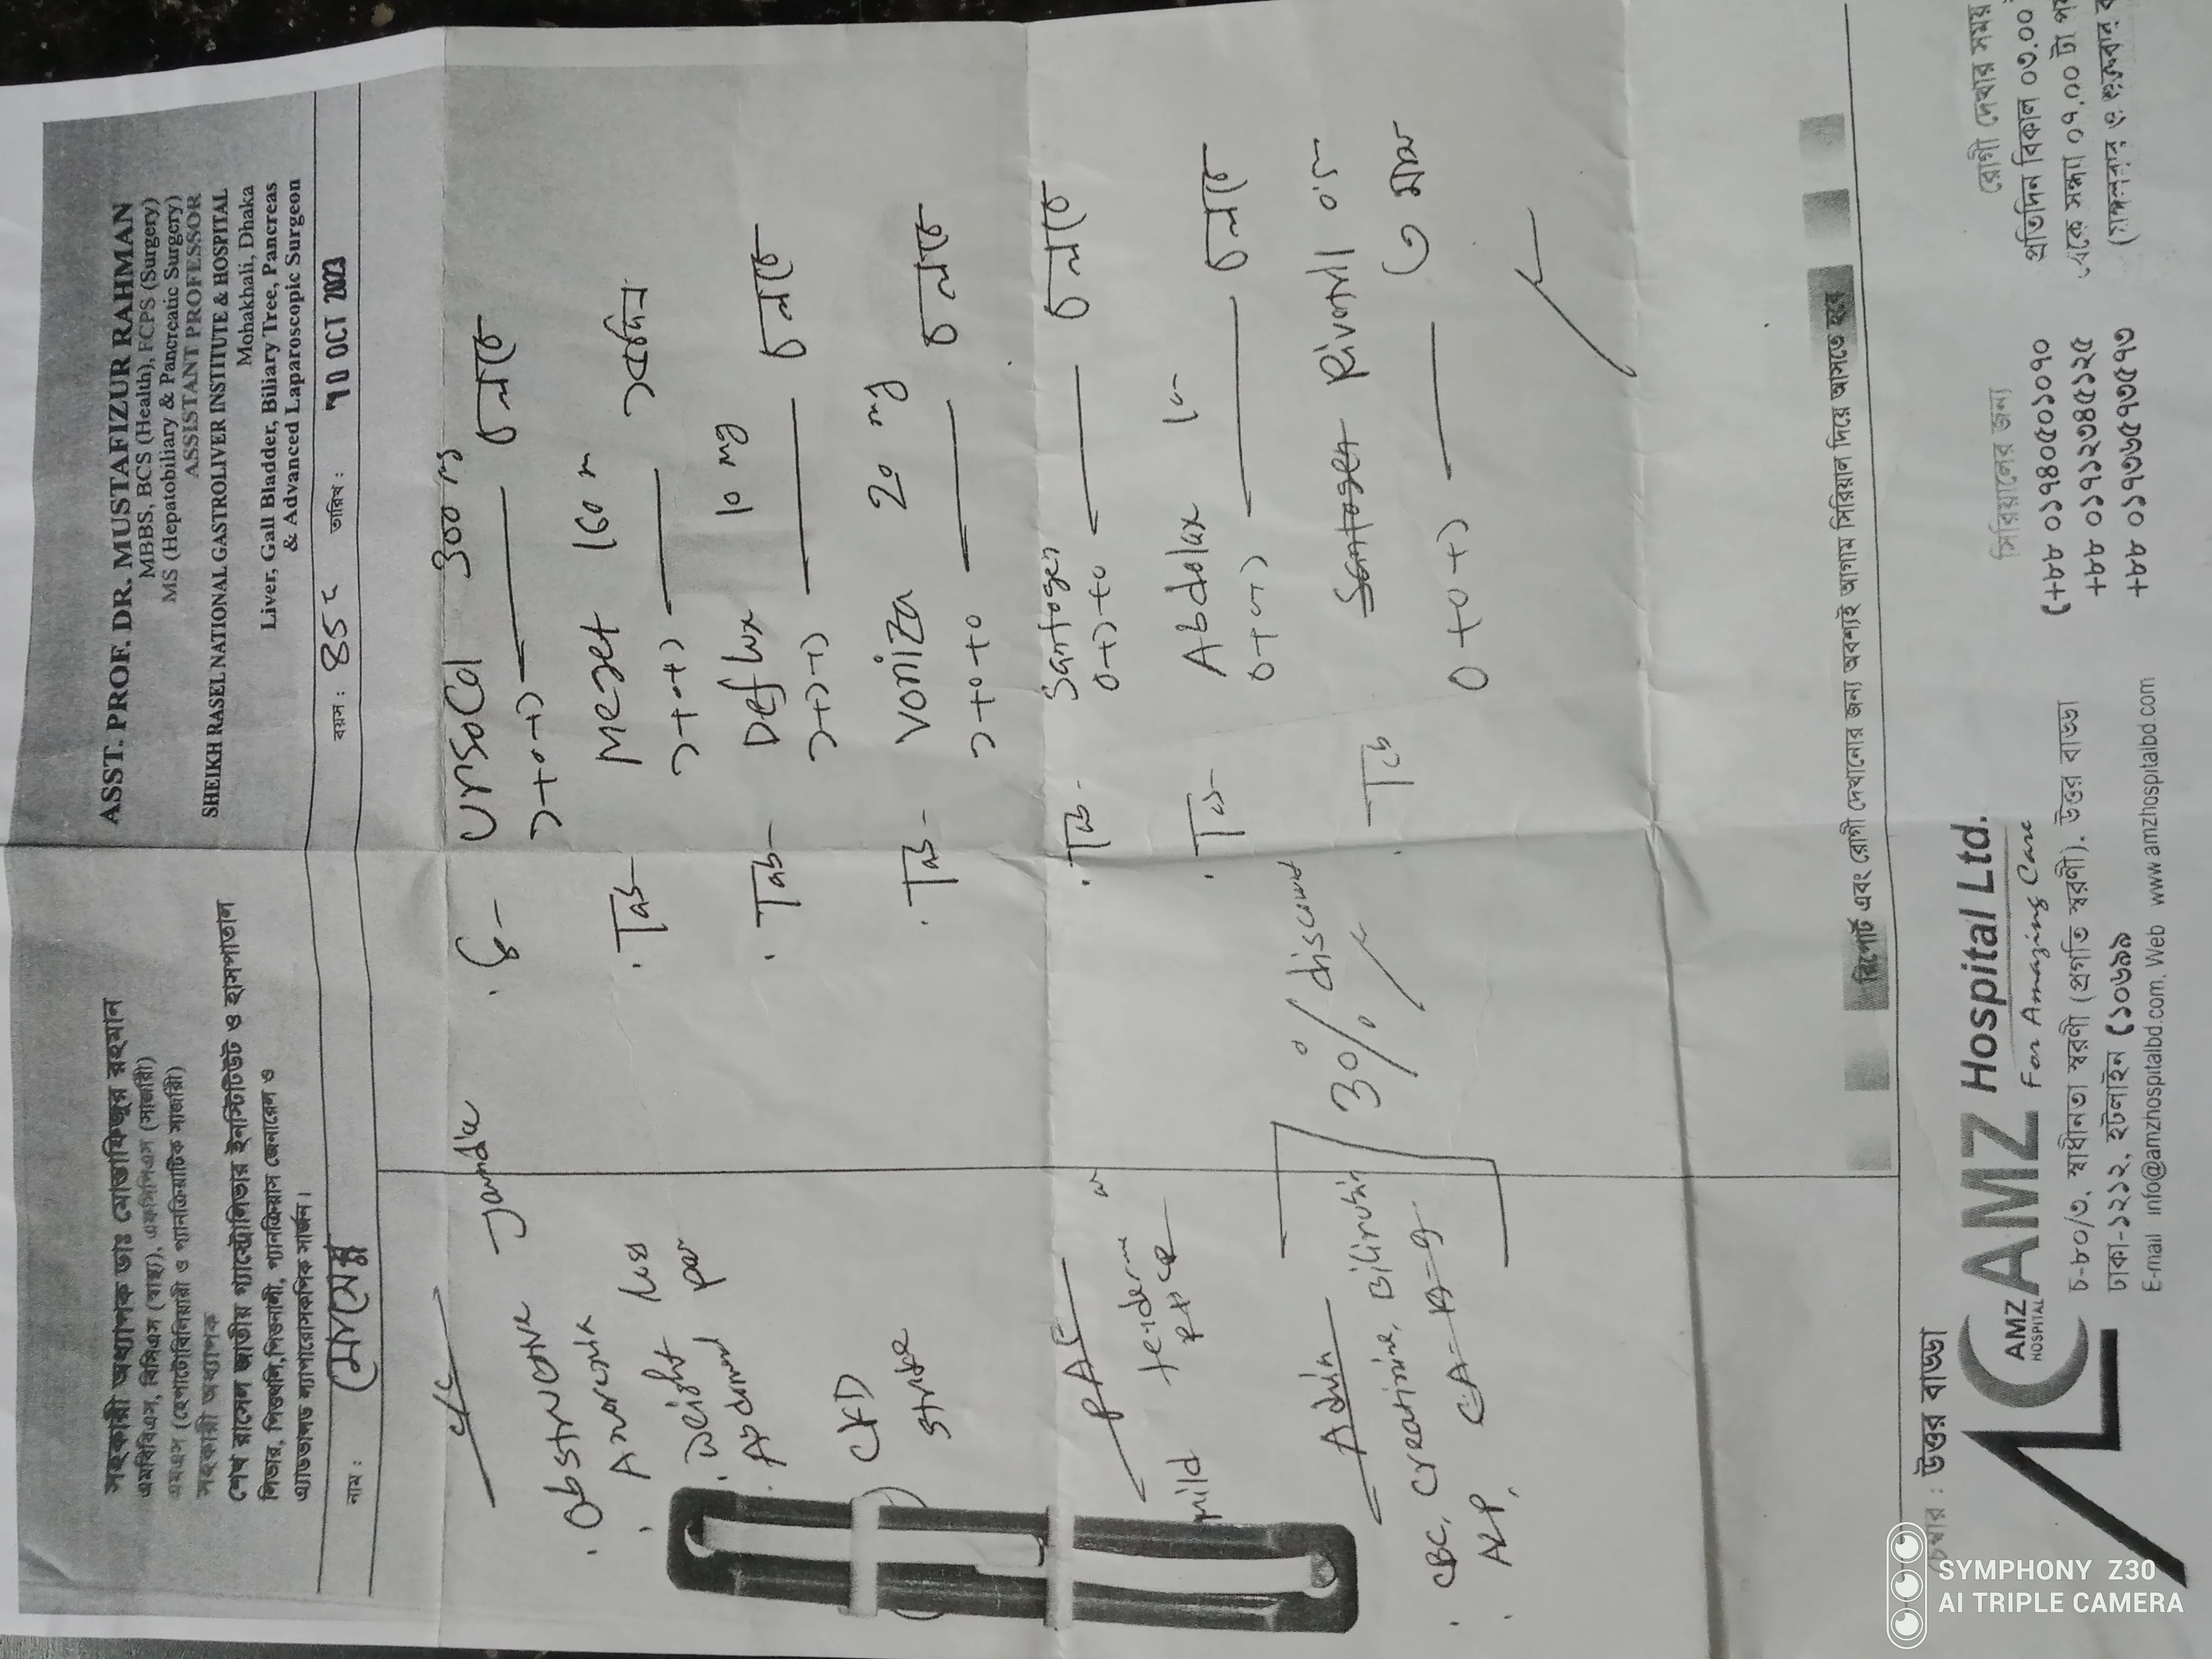 সহকারী অধ্যাপক ডাঃ মোস্তাফিজুর রহমান
এমবিবিএস, বিসিএস (স্বাস্থ্য), এফসিপিএস (সার্জারী)
এমএস (হেপাটোবিলিয়ারী ও প্যানক্রিয়াটিক সার্জারী)
সহকারী অধ্যাপক
শেখ রাসেল জাতীয় গ্যাস্ট্রোলিভার ইনস্টিটিউট ও হাসপাতাল
লিভার, পিত্তথলি, পিত্তনালী, প্যানক্রিয়াস জেনারেল ও
এ্যাডভান্সড ল্যাপারোসকপিক সার্জন।
ASST. PROF. DR. MUSTAFIZUR RAHMAN
MBBS, BCS (Health), FCPS (Surgery)
MS (Hepatobiliary & Pancreatic Surgery)
ASSISTANT PROFESSOR
SHEIKH RASEL NATIONAL GASTROLIVER INSTITUTE & HOSPITAL
Mohakhali, Dhaka
Liver, Gall Bladder, Biliary Tree, Pancreas
& Advanced Laparoscopic Surgeon
নাম : বয়স : তারিখ : 10 OCT 2023
C/C
Obstructive Jaundice
Anorexia
Weight loss
Abdominal pain
CKD
Stroke
mild
Advice
CBC, Creatinine, Bilirubin
ALP, CA-19-9
30% discount
Ursocol 300 mg
১+০+১ চলবে
Tab- Mezet 160
১+০+১
Tab- Deflux 10 mg
১+১+১ চলবে
Tab- Voniza 20 mg
১+০+০ চলবে
Tab- Santogen
০+১+০ চলবে
Tab- Abdolax
চলবে
Tab Santogen Rivotril ০.৫
০+০+১ ৩ মাস
রিপোর্ট এবং রোগী দেখানোর জন্য অবশ্যই আগাম সিরিয়াল দিয়ে আসতে হবে
চেম্বার : উত্তর বাড্ডা
AMZ HOSPITAL
AMZ Hospital Ltd.
For Amazing Care
চ-৮০/৩, স্বাধীনতা স্বরণী (প্রগতি স্বরণী), উত্তর বাড্ডা
ঢাকা-১২১২, হটলাইন (১০৬৯৯
E-mail info@amzhospitalbd.com. Web www.amzhospitalbd.com
সিরিয়ালের জন্য
(+৮৮ ০১৭৪০৫০১০৭০
+৮৮ ০১৭১২৩৪৫১২৫
+৮৮ ০১৭৩৬৫৭৩৫৭৩
রোগী দেখার সময়
প্রতিদিন বিকাল ০৩.০০
থেকে সন্ধ্যা ০৭.০০ টা
(মঙ্গলবার ও শুক্রবার
SYMPHONY Z30
AI TRIPLE CAMERA